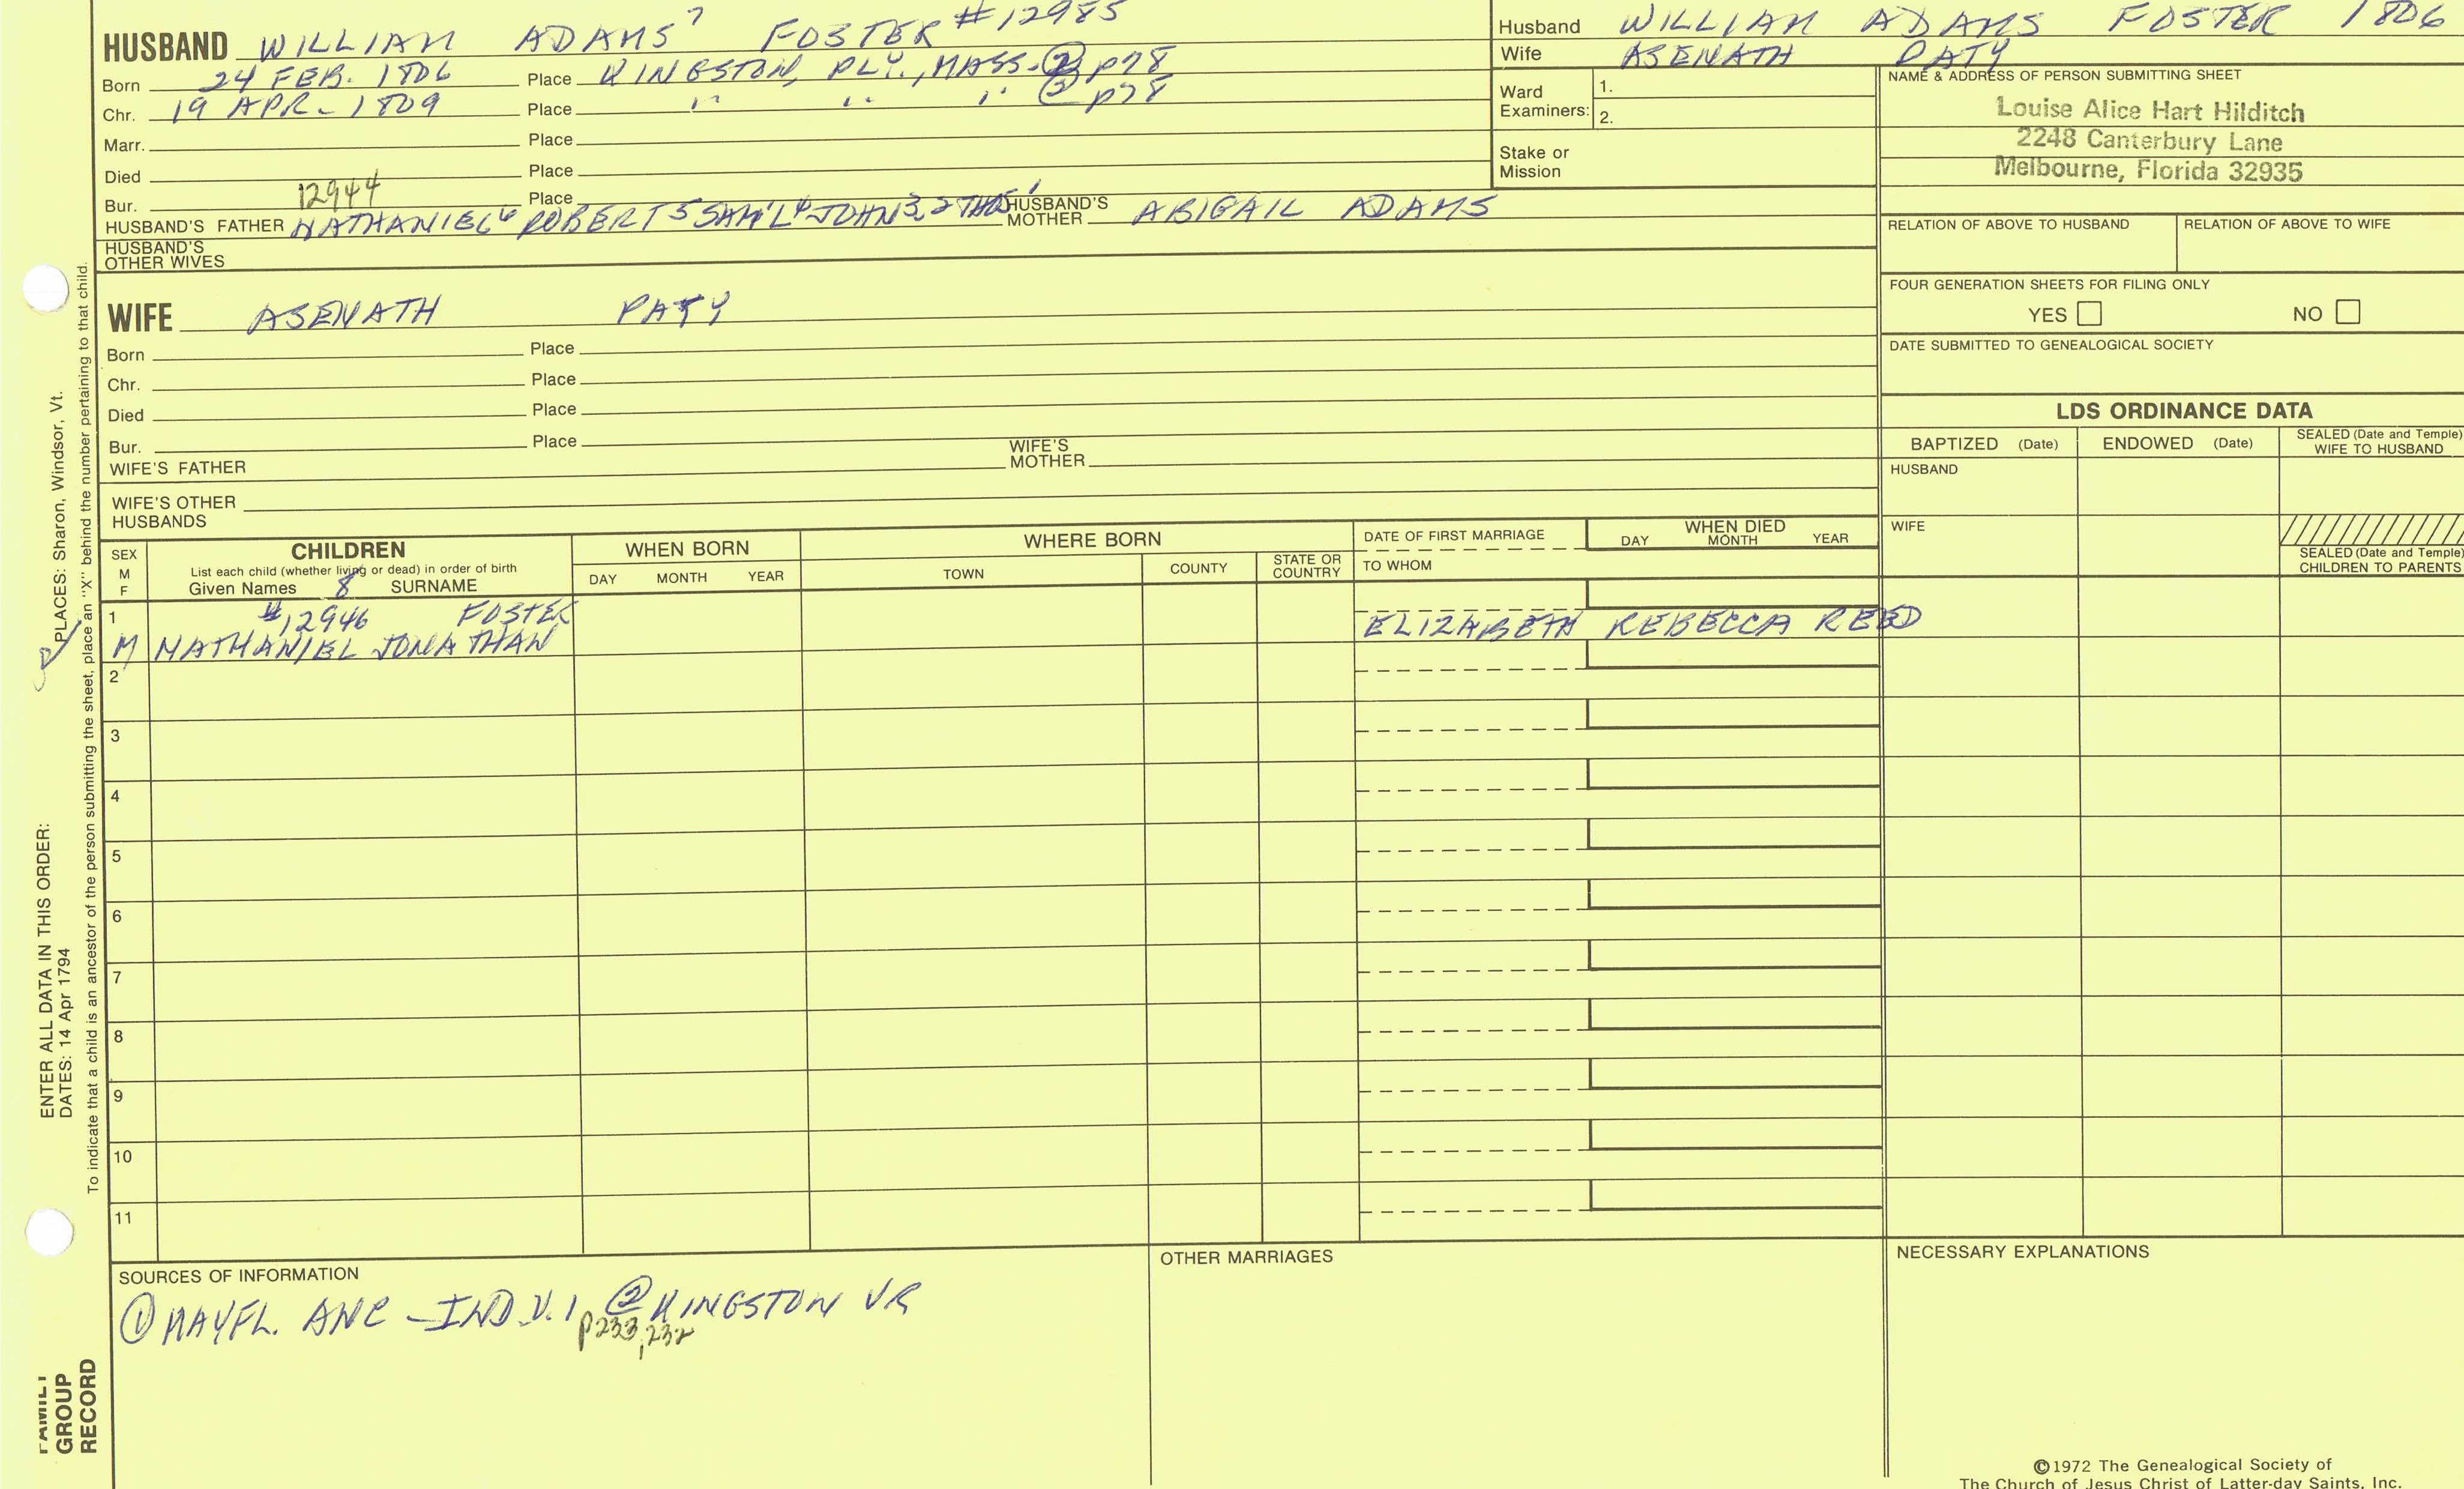 HUSBAND WILLIAM ADAMS 7 FOSTER #12985
Born 24 FEB. 1806 Place KINGSTON, PLY., MASS. ② p78
Chr. 19 APR. 1809 Place " " " ② p78
Marr. Place
Died Place
Bur. 12944 Place
HUSBAND'S FATHER NATHANIEL 6 ROBERT 5 SAM'L 4 JOHN 3, 2 THOS 1 HUSBAND'S MOTHER ABIGAIL ADAMS
HUSBAND'S OTHER WIVES
WIFE ASENATH PATY
Born Place
Chr. Place
Died Place
Bur. Place
WIFE'S FATHER WIFE'S MOTHER
WIFE'S OTHER HUSBANDS
Husband WILLIAM ADAMS FOSTER 1806
Wife ASENATH PATY
Ward Examiners: 1.
2.
Stake or Mission
NAME & ADDRESS OF PERSON SUBMITTING SHEET
Louise Alice Hart Hilditch
2248 Canterbury Lane
Melbourne, Florida 32935
RELATION OF ABOVE TO HUSBAND RELATION OF ABOVE TO WIFE
FOUR GENERATION SHEETS FOR FILING ONLY
YES NO
DATE SUBMITTED TO GENEALOGICAL SOCIETY
LDS ORDINANCE DATA
BAPTIZED (Date) ENDOWED (Date) SEALED (Date and Temple) WIFE TO HUSBAND
HUSBAND
WIFE
SEALED (Date and Temple) CHILDREN TO PARENTS
SEX M F
CHILDREN
List each child (whether living or dead) in order of birth
Given Names 8 SURNAME
WHEN BORN
DAY MONTH YEAR
WHERE BORN
TOWN COUNTY STATE OR COUNTRY
DATE OF FIRST MARRIAGE
TO WHOM
WHEN DIED
DAY MONTH YEAR
1 #12946 FOSTER
M NATHANIEL JONATHAN ELIZABETH REBECCA REED
2
3
4
5
6
7
8
9
10
11
SOURCES OF INFORMATION
① MAYFL. ANC - IND V. 1 ② KINGSTON VR
p233, 232
OTHER MARRIAGES
NECESSARY EXPLANATIONS
©1972 The Genealogical Society of
The Church of Jesus Christ of Latter-day Saints, Inc.
FAMILY
GROUP
RECORD
ENTER ALL DATA IN THIS ORDER:
DATES: 14 Apr 1794 PLACES: Sharon, Windsor, Vt.
To indicate that a child is an ancestor of the person submitting the sheet, place an "X" behind the number pertaining to that child.